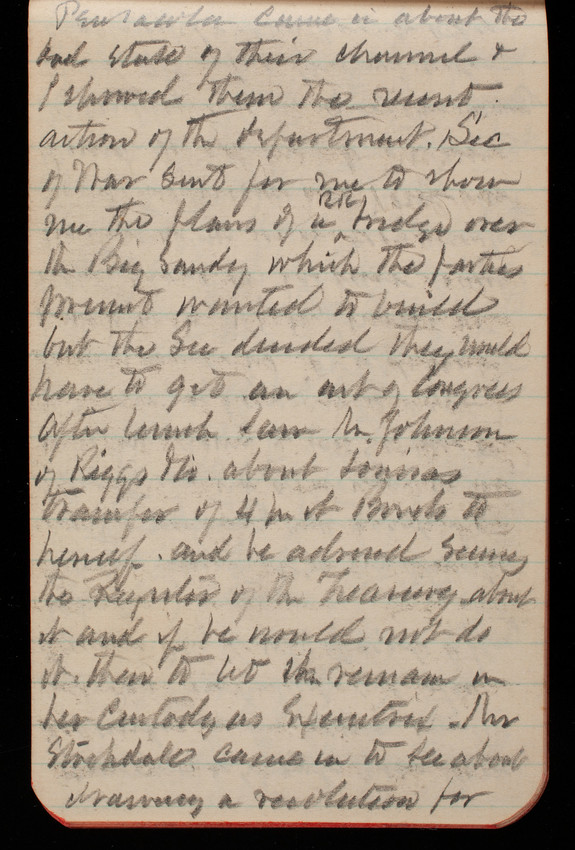 Pensacola came in about the
bad state of their channel &
I showed them the recent
action of the department. Sec
of War sent for me to show
me the plans of a RR bridge over
the Big Sandy which the parties
present wanted to build
but the Sec decided they would
have to get an act of Congress
After lunch saw Mr. Johnson
of Riggs & Co. about Louisas
transfer of 4 pr ct Bonds to
herself. and he advised seeing
the Register of the Treasury about
it and if he would not do
it. then to let them remain in
her custody as Executrix. Mr
Stockdale came in to see about
drawing a resolution for